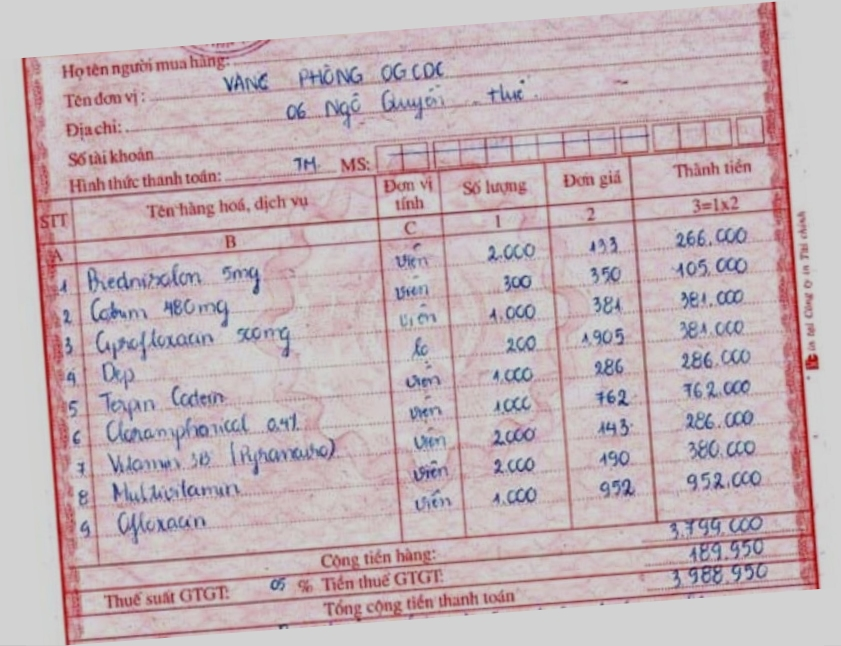 Họ tên người mua hàng:
Tên đơn vị: VĂNG PHÒNG OGCDC
Địa chỉ: 06 Ngô Quyền Huế
Số tài khoản
Hình thức thanh toán: TM. MS:
STT Tên hàng hoá, dịch vụ Đơn vị tính Số lượng Đơn giá Thành tiền
A B C 1 2 3=1x2
1 Prednisolon 5mg viên 2.000 133 266.000
2 Cotrim 480mg viên 300 350 105.000
3 Ciprofloxacin 500mg viên 1.000 381 381.000
4 Dep lọ 200 1.905 381.000
5 Terpin Codein viên 1.000 286 286.000
6 Cloramphenical 0.4% viên 1000 762 762.000
7 Vitamin 3B viên 2000 143 286.000
8 Multivitamin viên 2.000 190 380.000
9 Ofloxacin viên 1.000 952 952.000
Cộng tiền hàng: 3.799.000
Thuế suất GTGT: 05 % Tiền thuế GTGT: 189.950
Tổng cộng tiền thanh toán 3.988.950
in tại Công ty in Tài chính